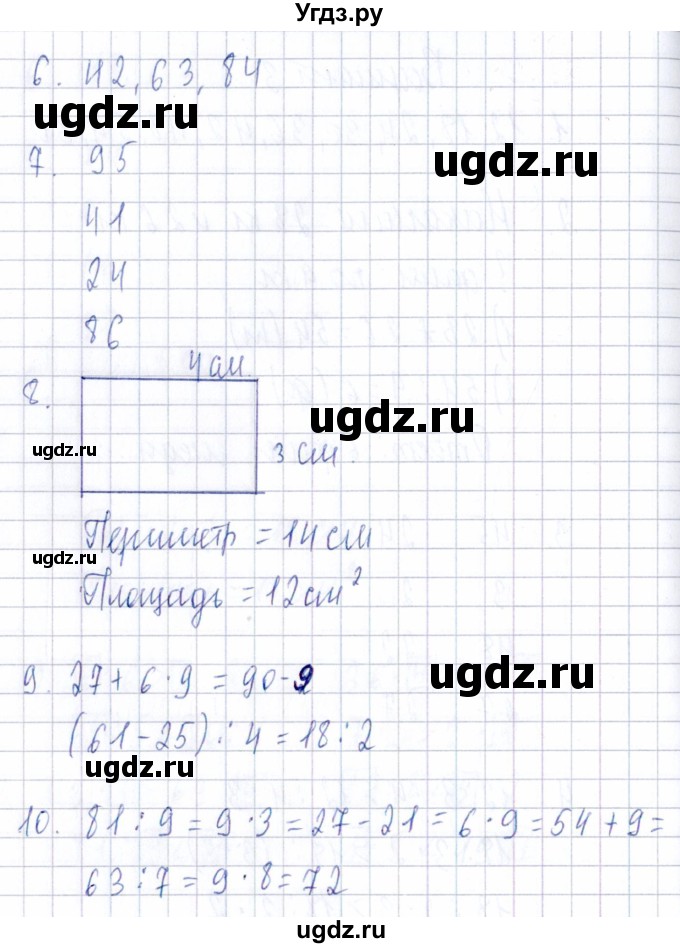 Угдз.ру
6. 42, 63, 84
ugdz.ru
ugdz.ru
7. 95
41
24
86
4 см.
8.
ugdz.ru
ugdz.ru
3 см.
Периметр = 14 см
ugdz.ru
Площадь = 12 см²
9. 27 + 6 · 9 = 90 - 9
ugdz.ru
(61 - 25) : 4 = 18 : 2
ugdz.ru
10. 81 : 9 = 9 · 3 = 27 - 21 = 6 · 9 = 54 + 9 =
63 : 7 = 9 · 8 = 72
ugdz.ru